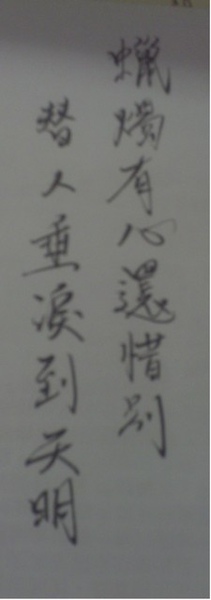 蠟燭有心還惜別
替人垂淚到天明